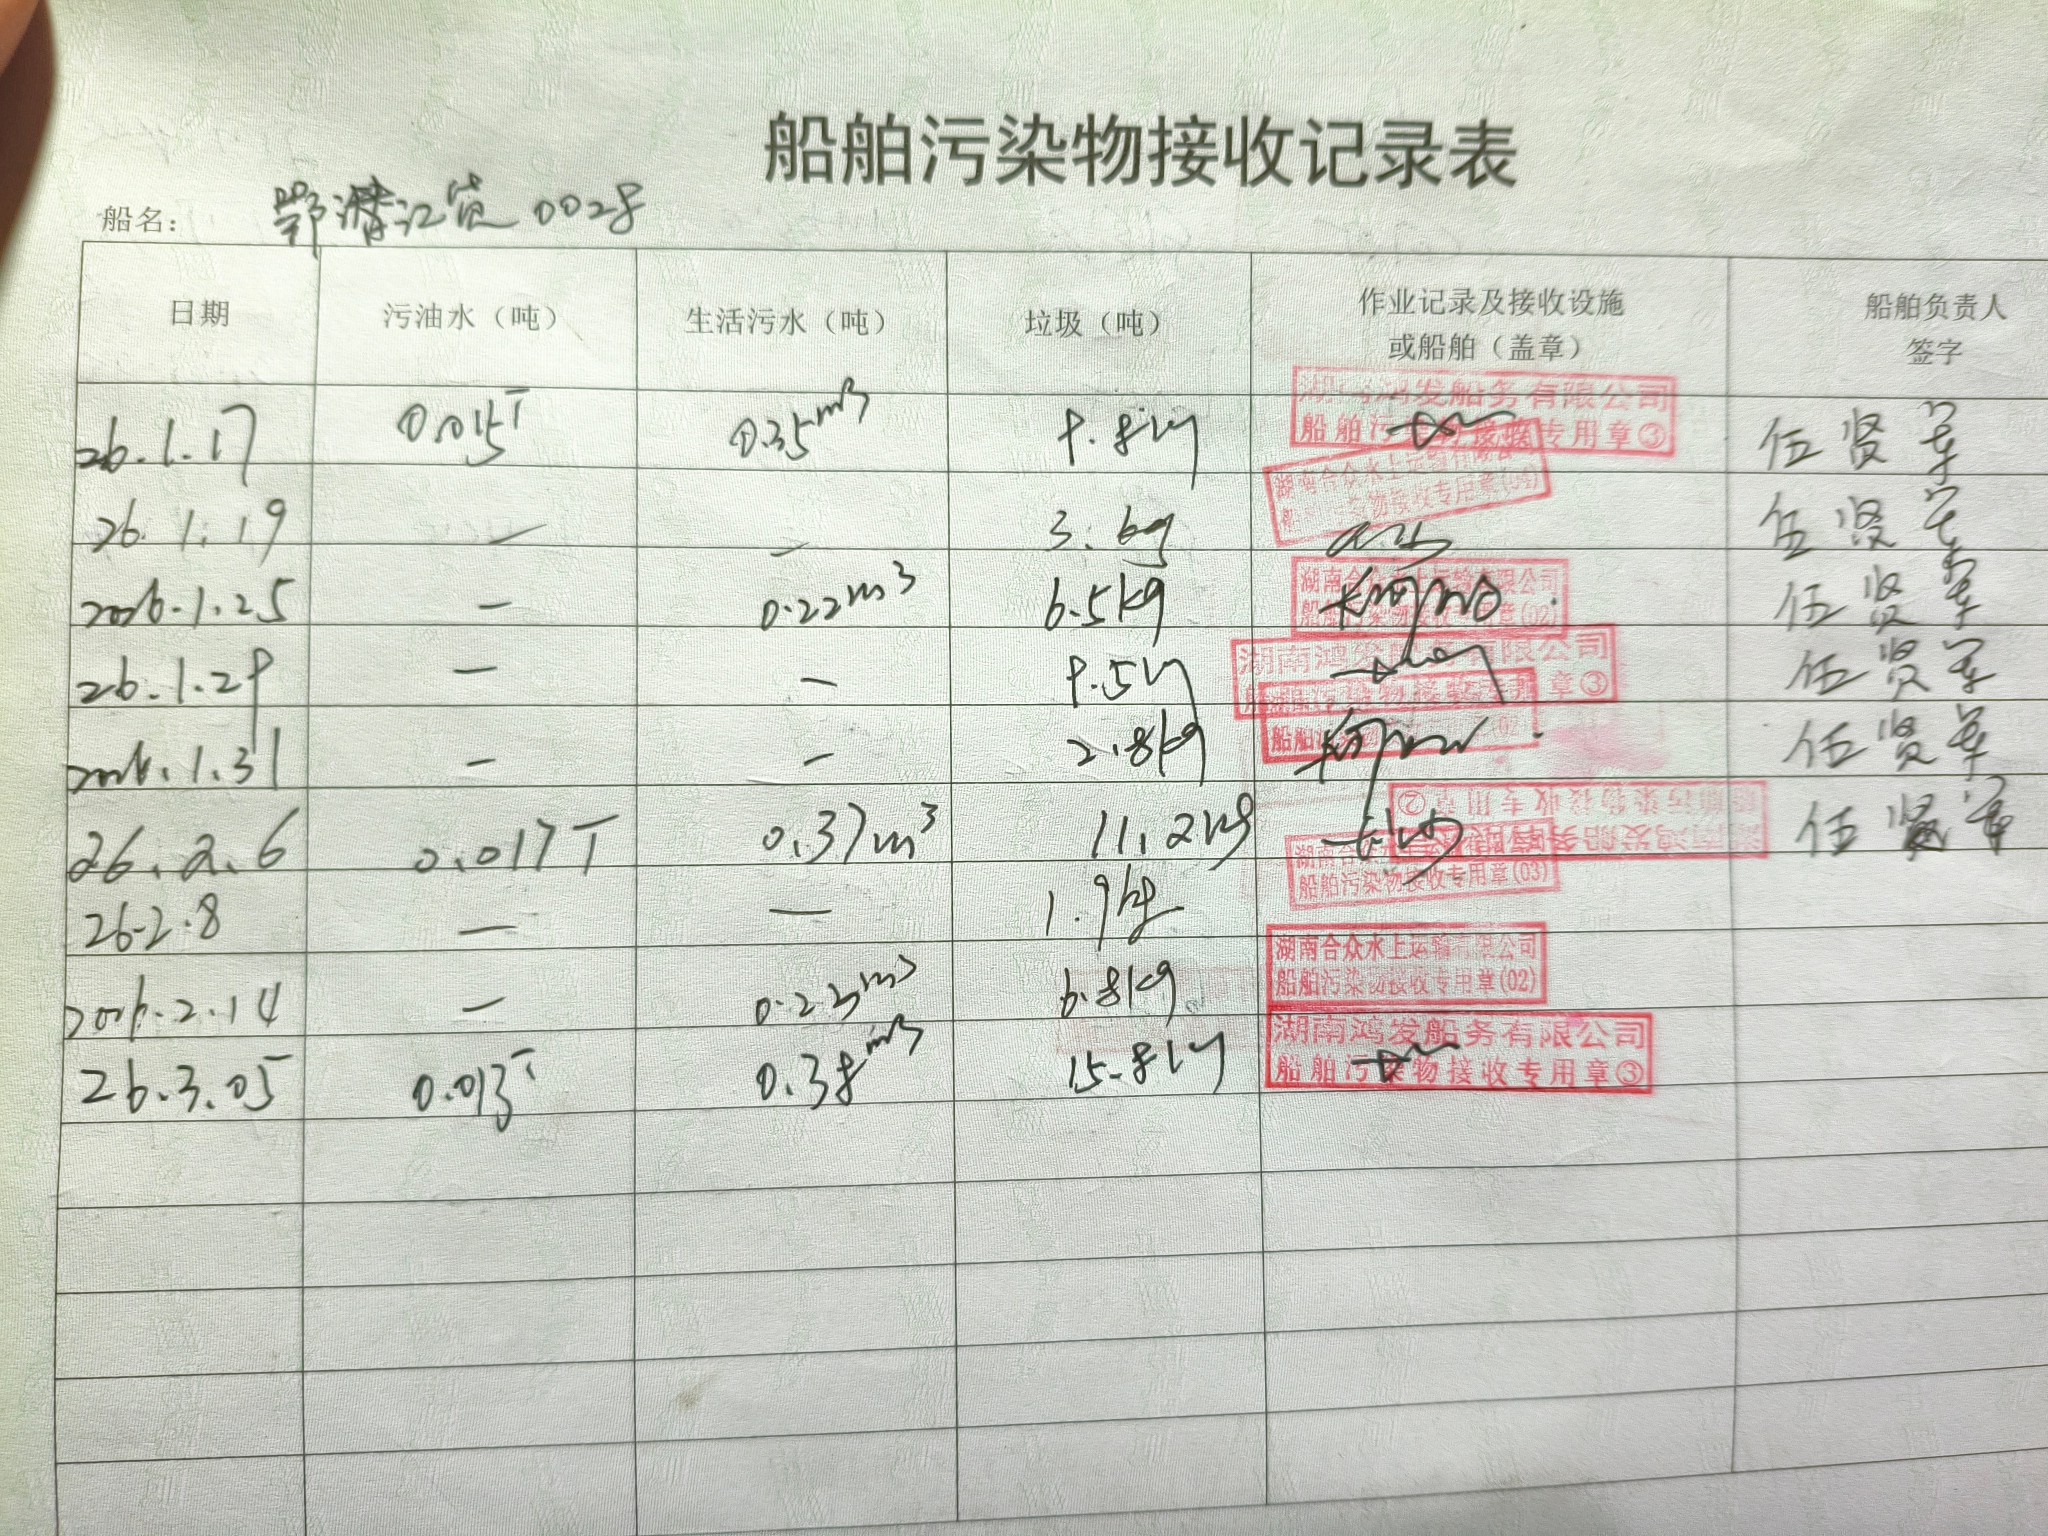 船舶污染物接收记录表
船名： 鄂清江货0028
日期 污油水（吨） 生活污水（吨） 垃圾（吨） 作业记录及接收设施或船舶（盖章） 船舶负责人签字
26.1.17 0.015T 0.35m³ 湖南鸿发船务有限公司 船舶污染物接收专用章③ 任贤军
26.1.19 — — 3.6kg 湖南合众水上运输有限公司 船舶污染物接收专用章(04) 任贤军
2026.1.25 — 0.22m³ 6.5kg 湖南合众水上运输有限公司 船舶污染物接收专用章(02) 任贤军
— — 湖南鸿发船务有限公司 船舶污染物接收专用章③ 任贤军
2026.1.31 — — 2.8kg 任贤军
26.2.6 0.017T 0.37m³ 11.2kg 湖南鸿发船务有限公司 船舶污染物接收专用章② 任贤军
26.2.8 — — 1.9kg 湖南合众水上运输有限公司 船舶污染物接收专用章(03)
2026.2.14 — 0.23m³ 6.8kg 湖南合众水上运输有限公司 船舶污染物接收专用章(02)
26.3.05 0.013T 0.38m³ 15.8kg 湖南鸿发船务有限公司 船舶污染物接收专用章③